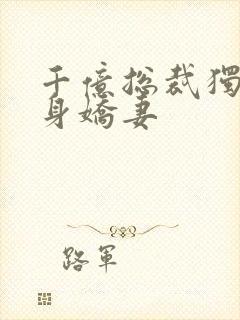 千億總裁獨
身嬌妻
路軍